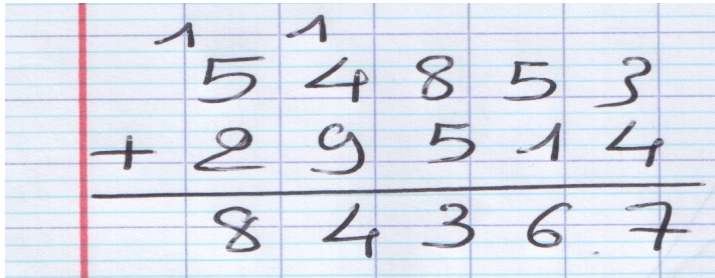 1 1
5 4 8 5 3
+ 2 9 5 1 4
8 4 3 6 7